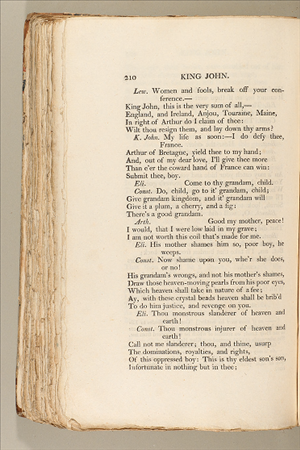 210 KING JOHN.
Lew. Women and fools, break off your con-
ference.—
King John, this is the very sum of all,—
England, and Ireland, Anjou, Touraine, Maine,
In right of Arthur do I claim of thee:
Wilt thou resign them, and lay down thy arms?
K. John. My life as soon:—I do defy thee,
France.
Arthur of Bretagne, yield thee to my hand;
And, out of my dear love, I'll give thee more
Than e'er the coward hand of France can win:
Submit thee, boy.
Eli. Come to thy grandam, child.
Const. Do, child, go to it' grandam, child;
Give grandam kingdom, and it' grandam will
Give it a plum, a cherry, and a fig:
There's a good grandam.
Arth. Good my mother, peace!
I would, that I were low laid in my grave;
I am not worth this coil that's made for me.
Eli. His mother shames him so, poor boy, he
weeps.
Const. Now shame upon you, whe'r she does,
or no!
His grandam's wrongs, and not his mother's shames,
Draw those heaven-moving pearls from his poor eyes,
Which heaven shall take in nature of a fee;
Ay, with these crystal beads heaven shall be brib'd
To do him justice, and revenge on you.
Eli. Thou monstrous slanderer of heaven and
earth!
Const. Thou monstrous injurer of heaven and
earth!
Call not me slanderer; thou, and thine, usurp
The dominations, royalties, and rights,
Of this oppressed boy: This is thy eldest son's son,
Infortunate in nothing but in thee;